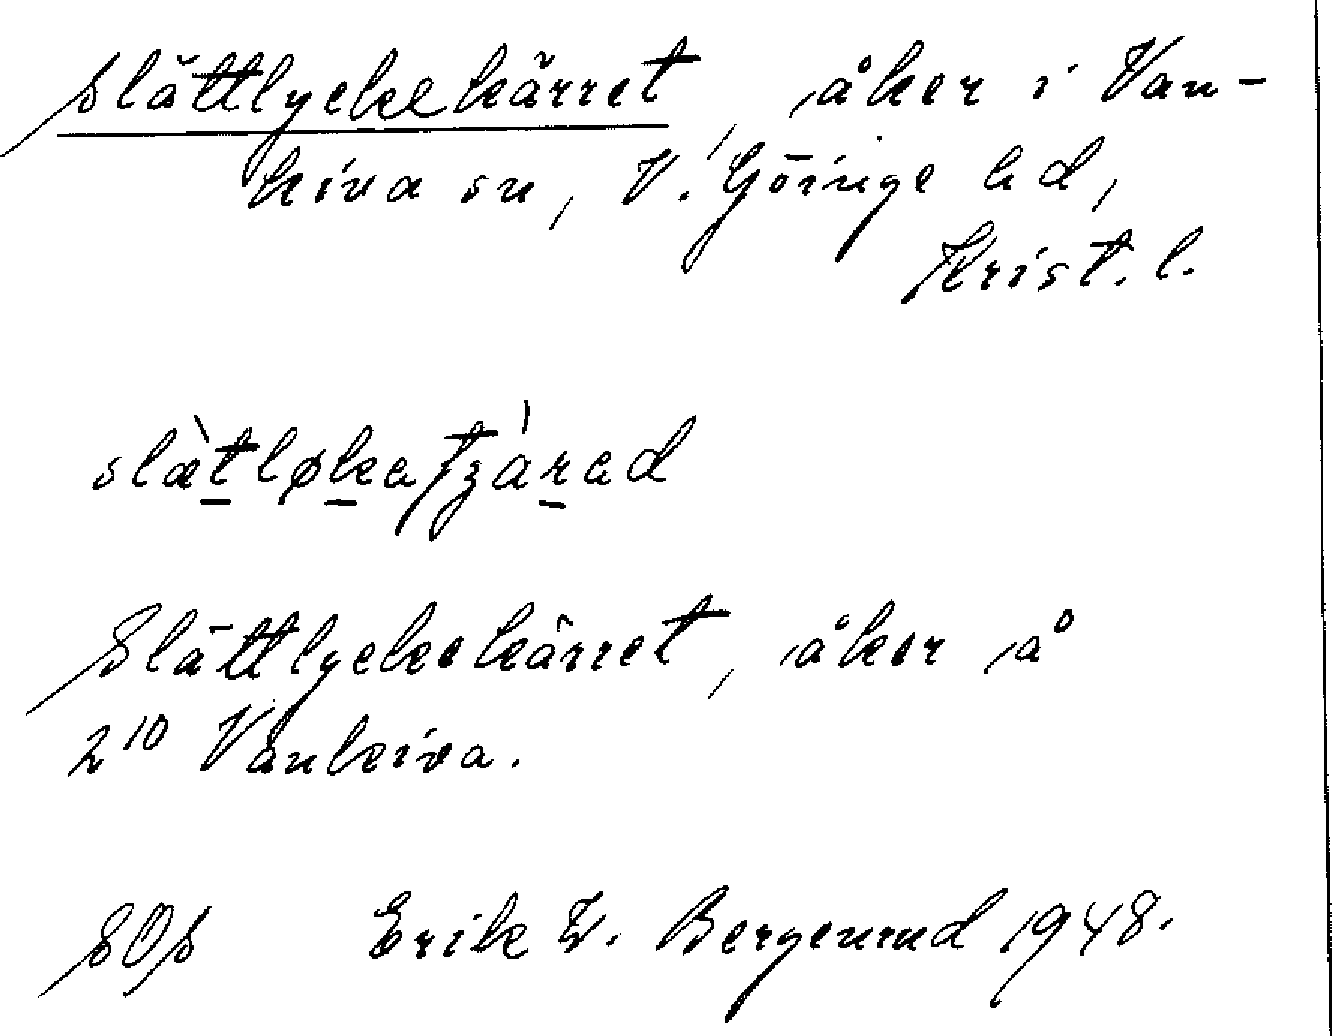 Slättlyckekärret, åker i Van-
kiva sn, V. Göinge hd,
Krist. l.
slæ̀tløkatʒárad
Slättlyckekärret, åker å
2¹⁰ Vankiva.
SOS Erik W. Bergenrud 1948.